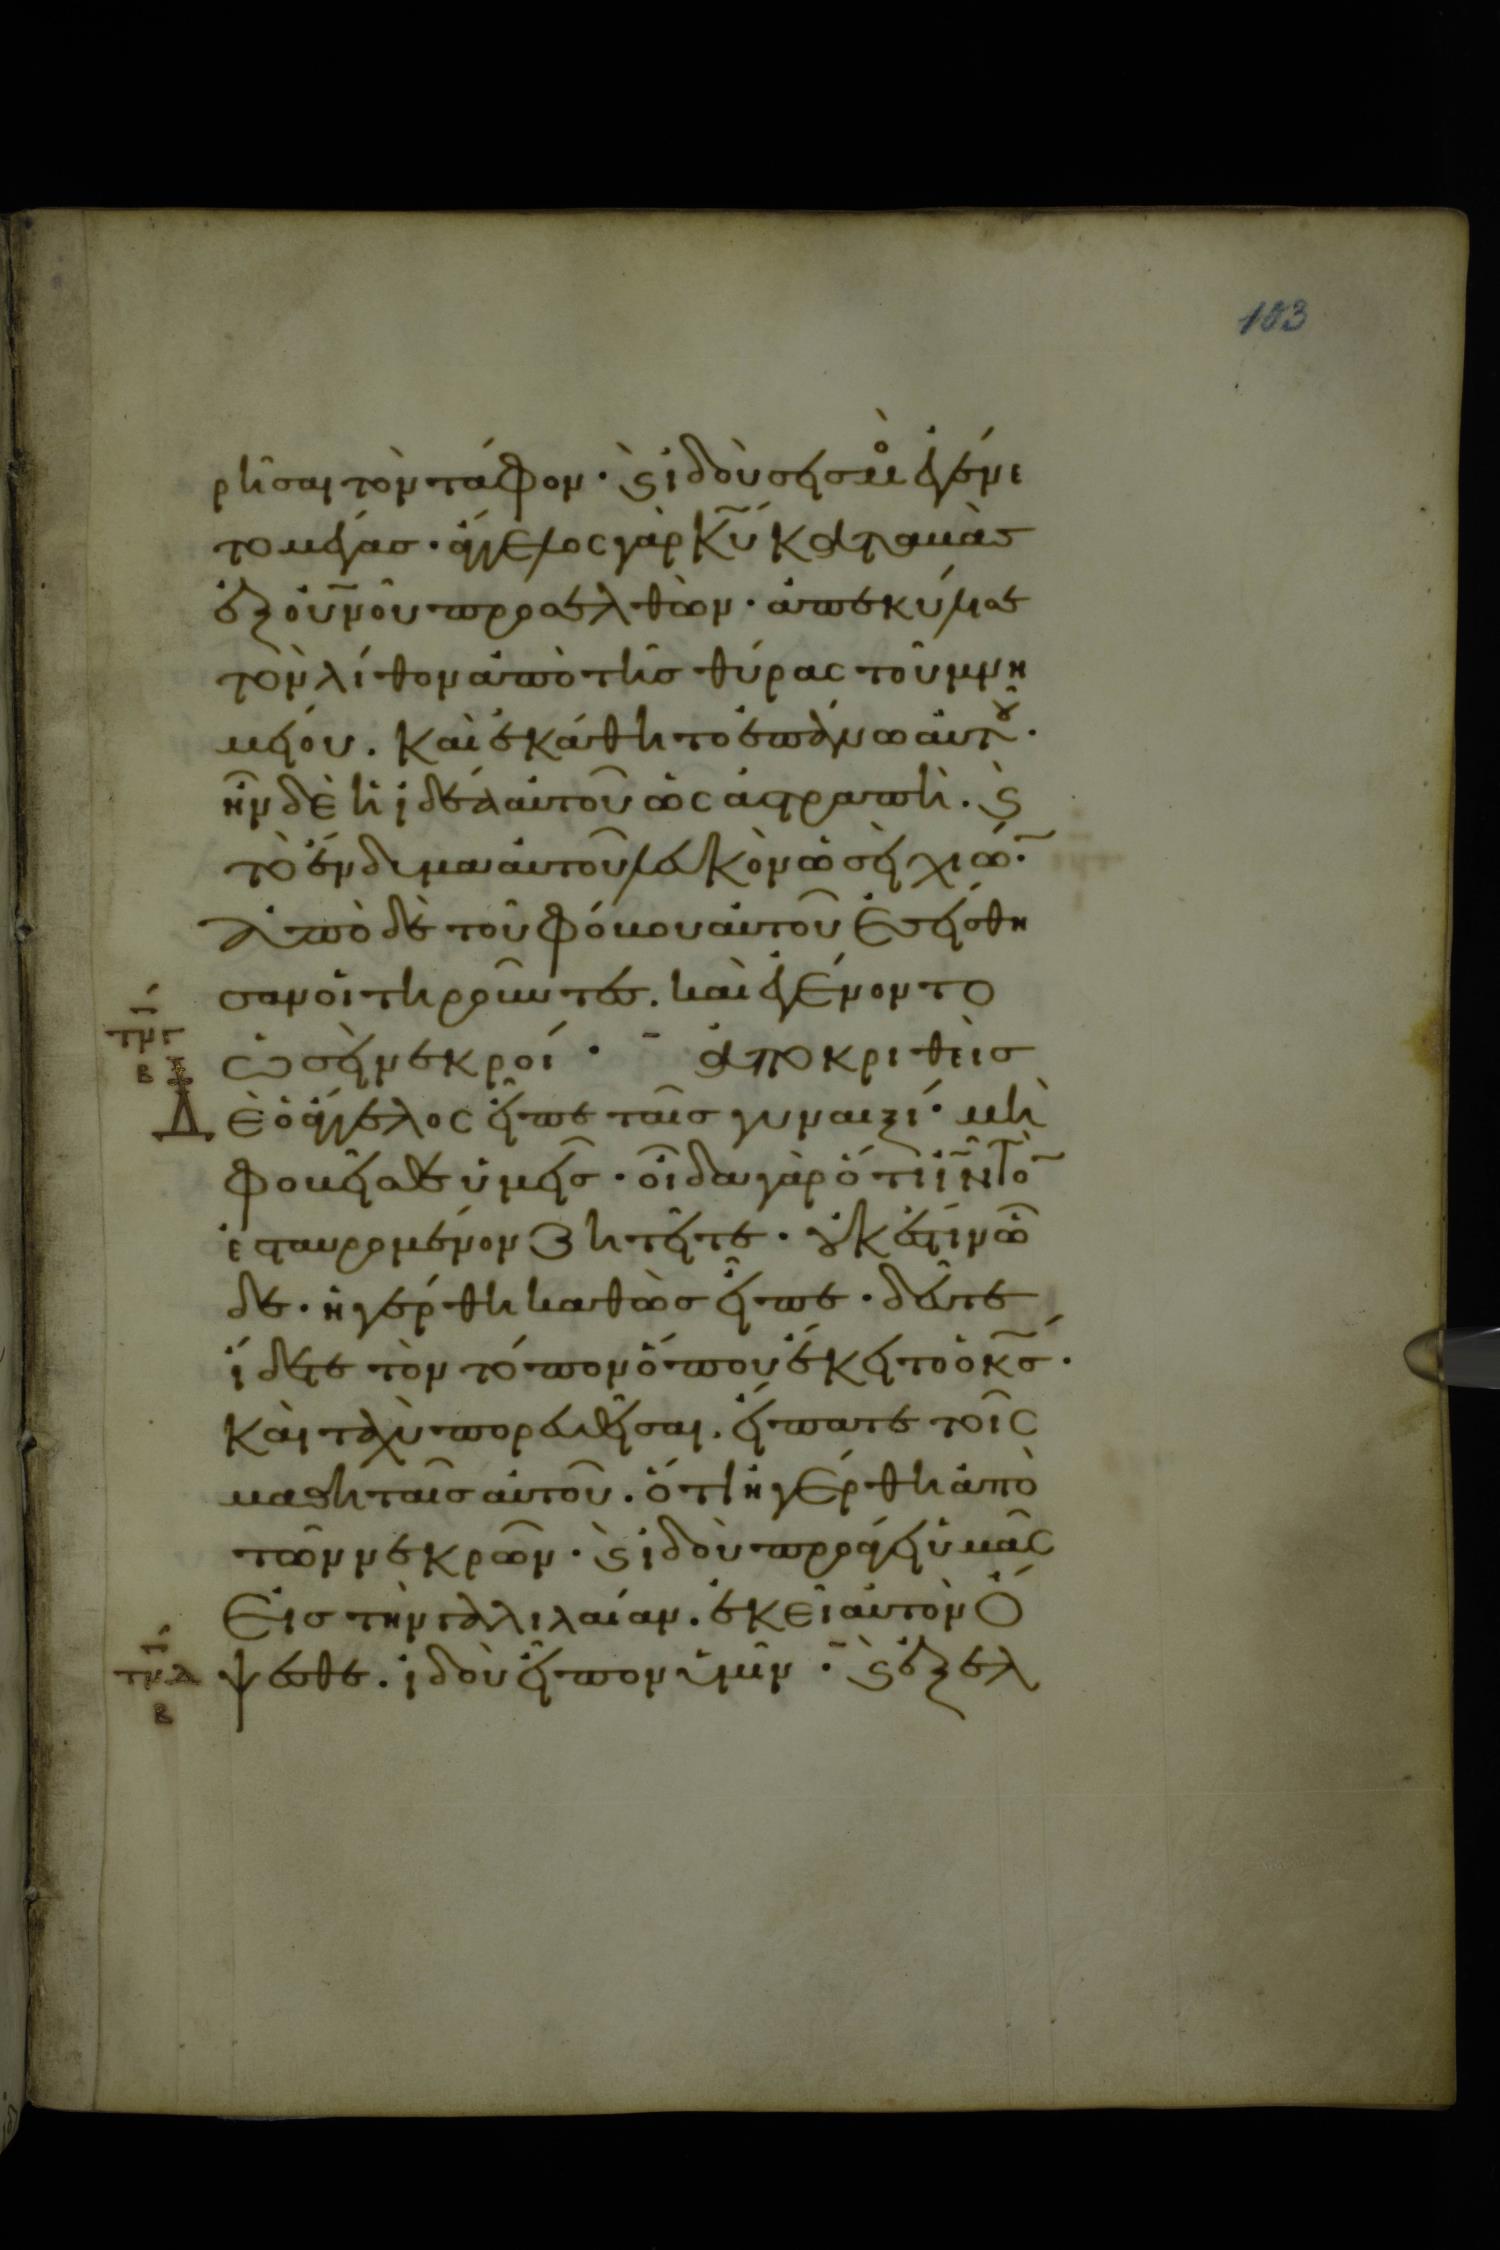 103
ρῆσαι τὸν τάφον · ϗ ἰδοὺ σεισμὸς ἐγένε
το μέγας · ἄγγελος γὰρ κ̅υ̅ καταβὰς
ἐξ οὐ̅ν̅οῦ προσελθὼν · ἀπεκύλισε
τὸν λίθον ἀπὸ τῆς θύρας τοῦ μνη
μείου. καὶ ἐκάθητο ἐπάνω αὐτοῦ ·
ἦν δὲ ἡ ἰδέα αὐτοῦ ὡς ἀστραπὴ. ϗ
τὸ ἔνδυμα αὐτοῦ λευκὸν ὡσεὶ χιών ·
Ἀπὸ δὲ τοῦ φόβου αὐτοῦ ἐσείσθη
σαν οἱ τηροῦντες. καὶ ἐγένοντο
ὡσεὶ νεκροί · ἀποκριθεὶς
Δ
ὲ ὁ ἄγγελος εἶπε ταῖς γυναιξί · μὴ
φοβεῖσθε ὑμεῖς · οἶδα γὰρ ὅτι ι̅ν̅ τὸ̅
ἐσταυρομένον ζητεῖτε · οὐκ ἔστιν ὧ
δε · ἠγέρθη καθὼς εἶπε · δεῦτε
ἴδετε τὸν τόπον ὅπου ἔκειτο ὁ κ̅ς̅ ·
καὶ ταχὺ πορευθεῖσαι. εἴπατε τοῖς
μαθηταῖς αὐτοῦ. ὅτι ἠγέρθη ἀπὸ
τῶν νεκρῶν · ϗ ἰδοὺ προάγει ὑμᾶς
εἰς τὴν γαλιλαίαν. ἐκεῖ αὐτὸν ὄ
ψεσθε. ἰδοὺ εἶπον ὑμῖν · ϗ ἐξελ